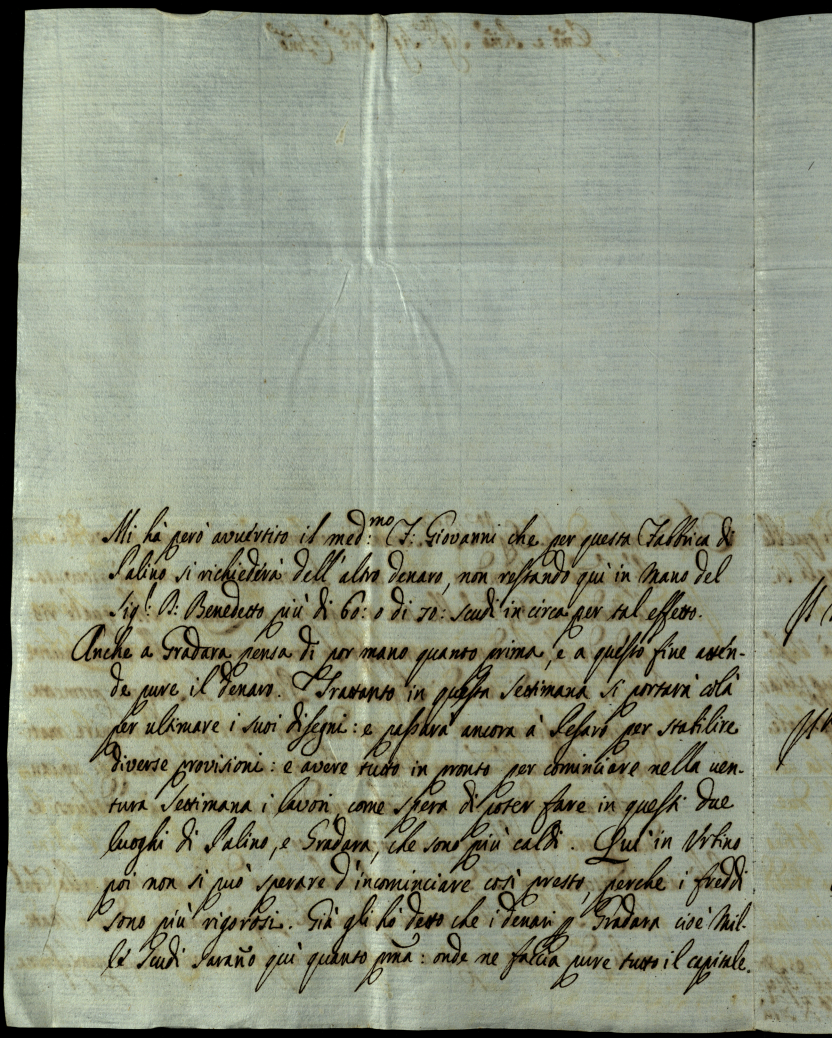 Mi hà però avvertito il med:mo F: Giovanni che per questa Fabbrica di
Palino si richiederà dell'altro denaro, non restando quì in mano del
Sig.r D: Benedetto più di 60: o di 70: scudi in circa per tal effetto.
Anche a Gradara pensa di por mano quanto prima, e a questo fine atten-
de pure il denaro. Trattanto in questa Settimana si portarà colà
per ultimare i suoi disegni: e passarà ancora à Pesaro per stabilire
diverse provisioni: e avere tutto in pronto per cominciare nella ven-
tura Settimana i lavori come spera di poter fare in questi due
luoghi di Palino, e Gradara, che sono più caldi. Quì in Urbino
poi non si può sperare d'incominciare così presto, perche i freddi
sono più rigorosi. Già gli hò detto che i denari p Gradara cioè Mil-
le Scudi Saraño quì quanto pma: onde ne faccia pure tutto il capitale.